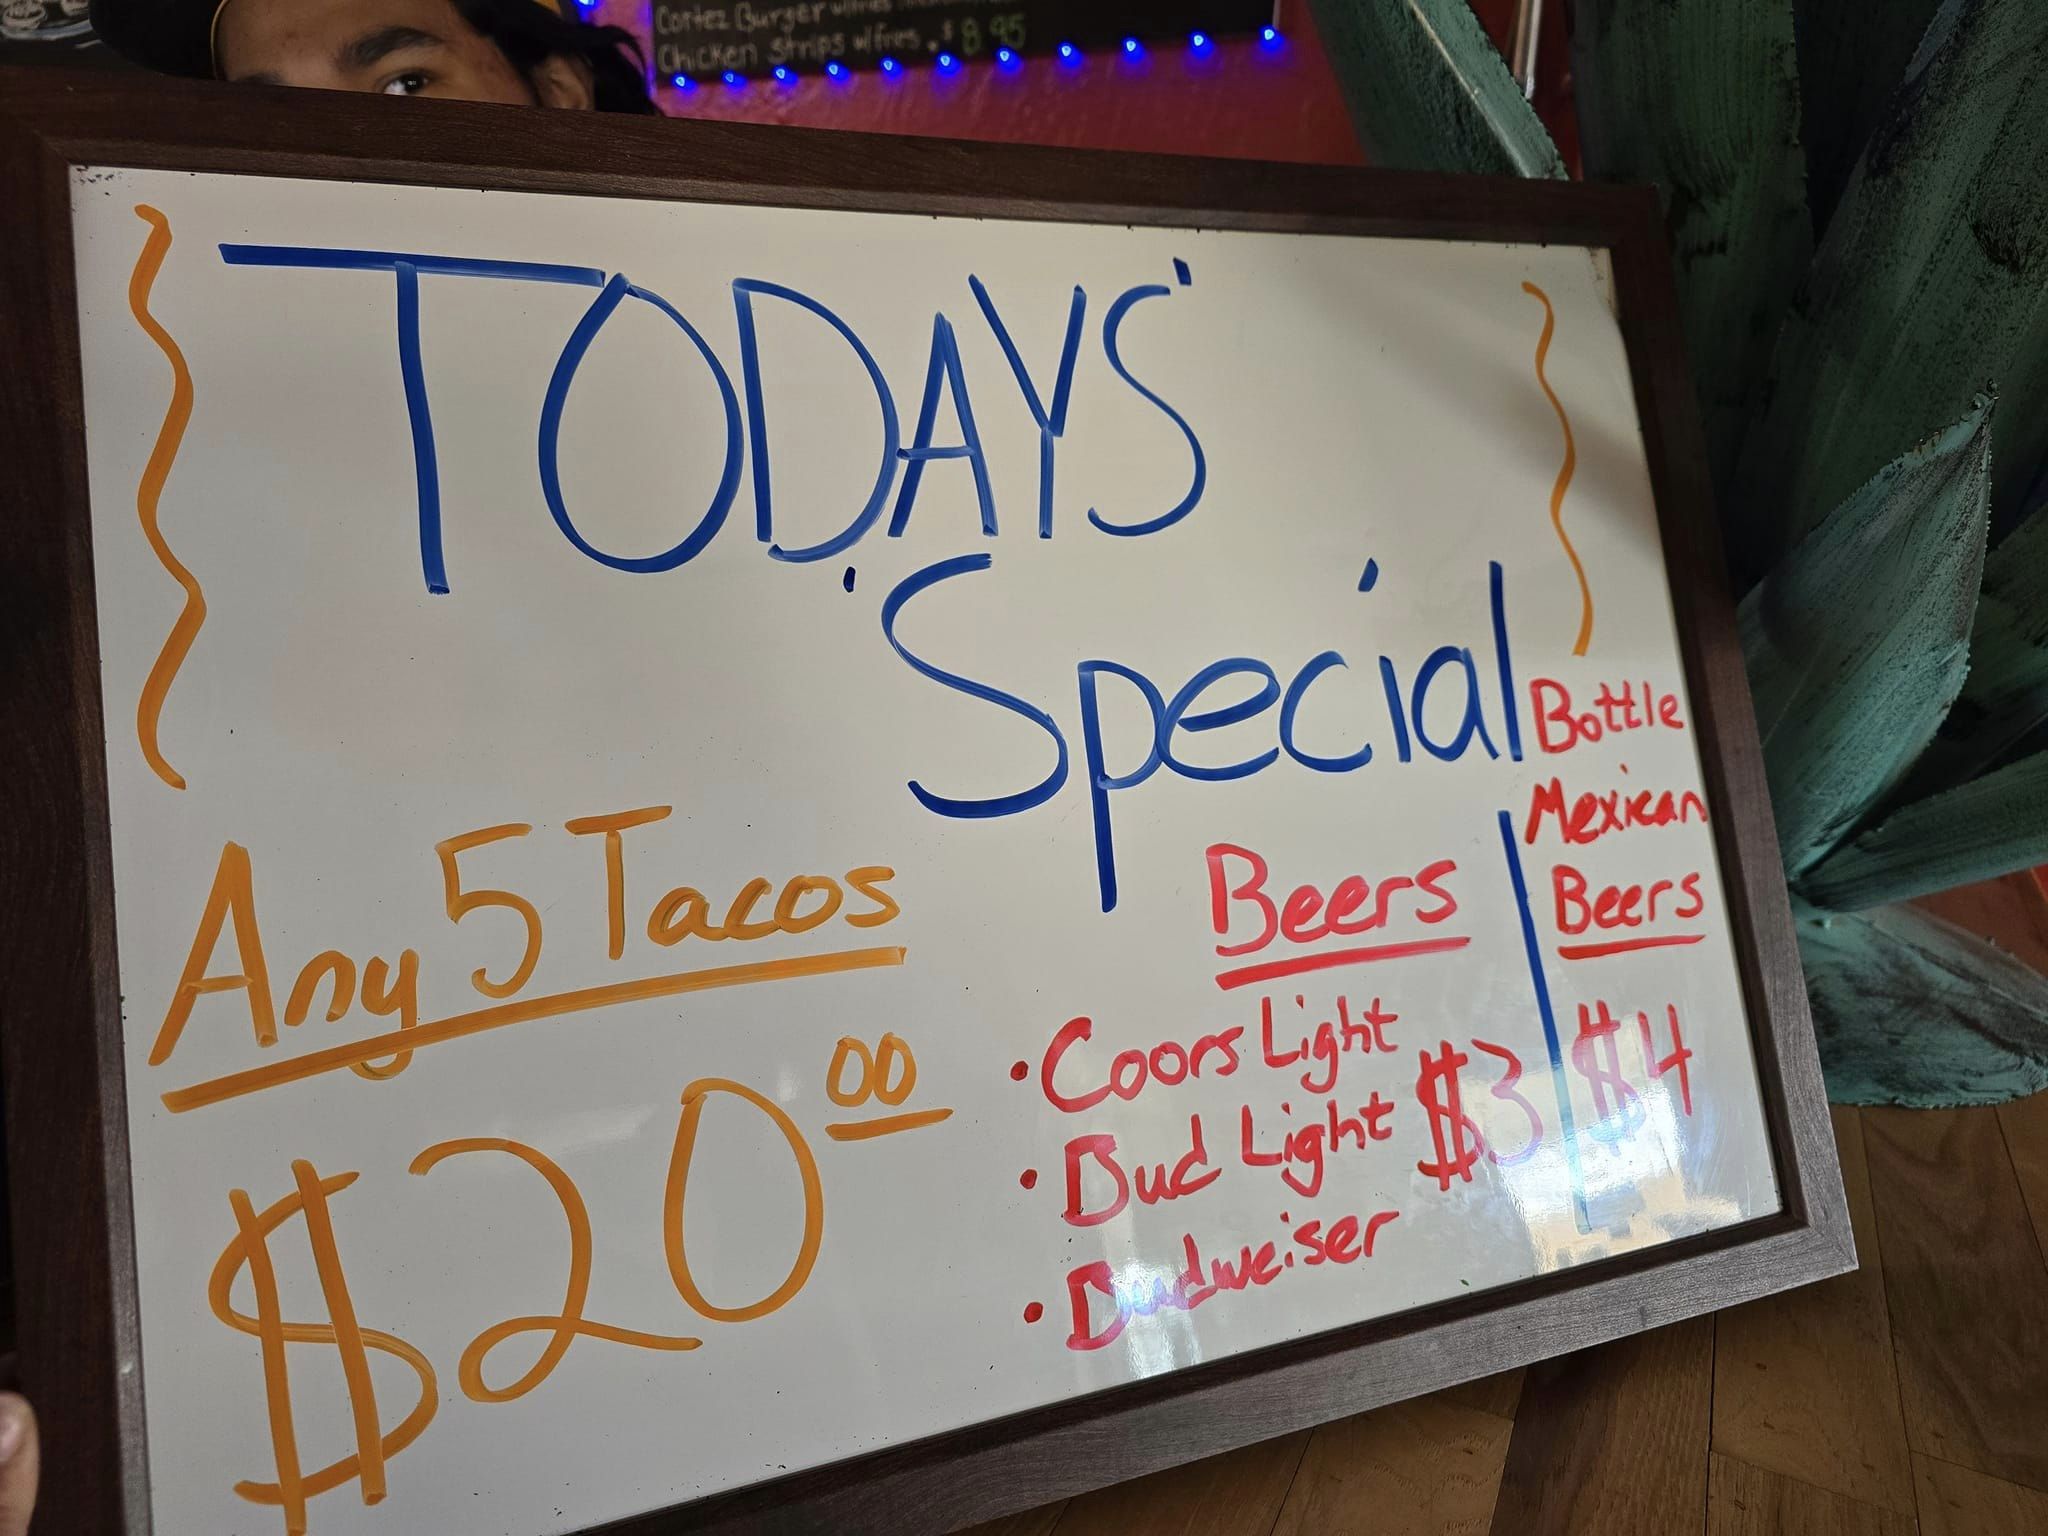 Cortez Burger w/fries
Chicken strips w/fries . $ 8.95
TODAYS'
'Special
Any 5 Tacos
$20.00
Beers
• Coors Light
• Bud Light $3
• Budweiser
Bottle
Mexican
Beers
$4